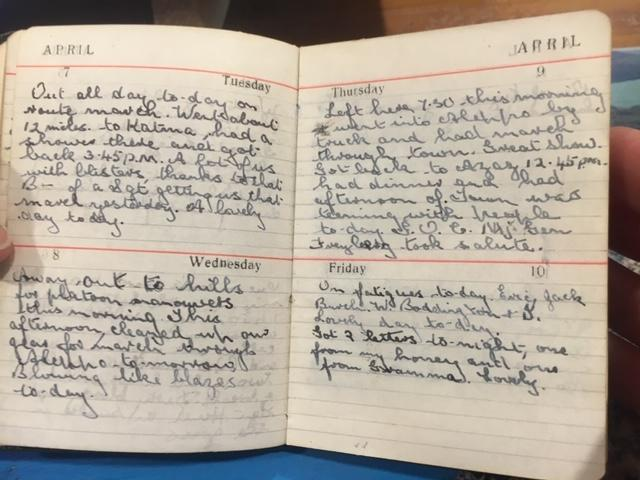 APRIL
7
Tuesday
Out all day to-day on
route march. Went about
12 miles. to Katma had a
shower there and got
back 3.45 P.M. A lot of us
with blisters, thanks to that
B— of a Sgt getting us that
march yesterday. A lovely
day today.
8
Wednesday
Away out to hills
for platoon manouvers
this morning This
afternoon cleaned up our
gear for march through
Aleppo to-morrow
Blowing like blazes
to-day.
APRIL
Thursday
9
Left here 7.30 this morning
went into Aleppo by
truck and had march
through town. Great show.
Got back to Azaz 12.45 p.m.
had dinner and had
afternoon off. Town was
teeming with people
to-day. G.O.C. Gen
Freyberg took salute.
Friday
10
On fatigues to-day. Eric, Jack
Burch. W. Boddington + I.
Lovely day to-day.
Got 2 letters to-night, one
from my honey and one
from Gramma. Lovely.